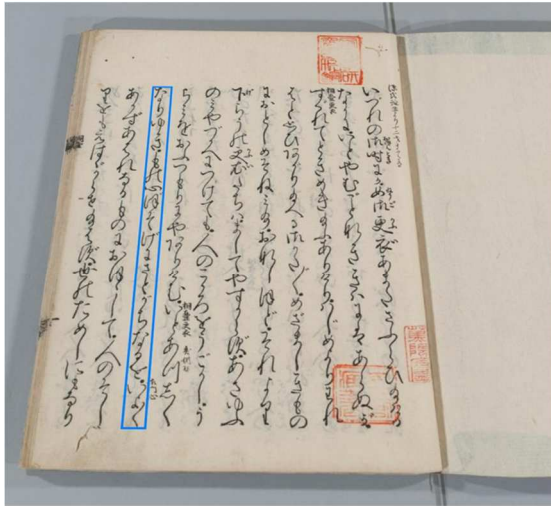 いづれの御時にか女御更衣あまたさふらひ給ける
なかにいとやむごとなきゝはにはあらぬが
桐壺更衣
すぐれてときめき給ふありけりはじめよりわれ
はと思ひあがり給へる御かた〴〵めざましきもの
におとしめそねみ給おなじほどそれより
下らうの更衣たちはましてやすからずあさゆふ
のみやづかへにつけても人のこころをうごかしう
らみをおふつもりにやありけむいとあつしく
桐壺更衣
なりゆきもの心ぼそげにさとがちなるをいよ〳〵
あかずあはれなるものにおぼほして人のそし
りをもえはゞからせ給はず世のためしにもなり